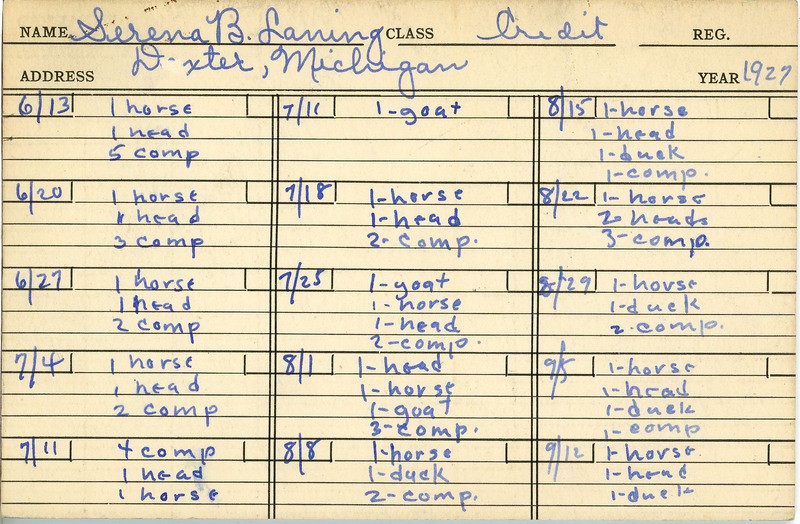 NAME Serena B. Laning CLASS Credit REG.
ADDRESS D-xter, Michigan YEAR 1927
6/13 1 horse
1 head
5 comp
6/20 1 horse
1 head
3 comp
6/27 1 horse
1 head
2 comp
7/4 1 horse
1 head
2 comp
7/11 4 comp
1 head
1 horse
7/11 1-goat
7/18 1-horse
1-head
2-comp.
7/25 1-goat
1-horse
1-head
2-comp.
8/1 1-head
1-horse
1-goat
3-comp.
8/8 1-horse
1-duck
2-comp.
8/15 1-horse
1-head
1-duck
1-comp.
8/22 1-horse
2 heads
3-comp.
8/29 1-horse
1-duck
2-comp.
9/5 1-horse
1-head
1-duck
1-comp
9/12 1-horse
1-head
1-duck